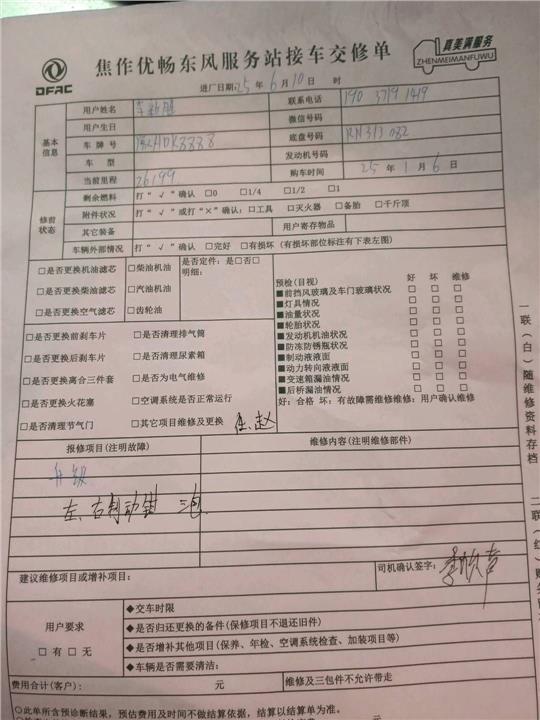 DFAC
焦作优畅东风服务站接车交修单
真美满服务
ZHENMEIMANFUWU
进厂日期: 25 年 6 月 10 日 时
基本信息
用户姓名
联系电话 190 3719 1419
用户生日
微信号码
车牌号
底盘号码 RN313082
车型
发动机号码
当前里程 26199
购车时间 25 年 1 月 6 日
修前状态
剩余燃料 打“√”确认 □0 □1/4 □1/2 □1
附件状况 打“√”或打“×”确认: □工具 □灭火器 □备胎 □千斤顶
其它装备
用户寄存物品
车辆外部情况 打“√”确认 □完好 □有损坏 (有损坏部位标注有下表左图)
□是否更换机油滤芯 □柴油机油 是否定件: 是□否□
□是否更换柴油滤芯 □汽油机油 明细:
□是否更换空气滤芯 □齿轮油
□是否更换前刹车片 □是否清理排气筒
□是否更换后刹车片 □是否清理尿素箱
□是否更换离合三件套 □是否为电气维修
□是否更换火花塞 □空调系统是否正常运行
□是否清理节气门 □其它项目维修及更换
预检(目视) 好 坏 维修
■前挡风玻璃及车门玻璃状况 □ □ □
■灯具情况 □ □ □
■油量状况 □ □ □
■轮胎状况 □ □ □
■发动机机油状况 □ □ □
■防冻防锈瓶状况 □ □ □
■制动液液面 □ □ □
■动力转向液液面 □ □ □
■变速箱漏油情况 □ □ □
■后桥漏油情况 □ □ □
好: 合格 坏: 有故障需维修维修: 用户确认维修
报修项目(注明故障)
维修内容(注明维修部件)
升级
左、右制动钳 三包
建议维修项目或增补项目:
司机确认签字:
用户要求
□有 □无
◆交车时限
◆是否归还更换的备件(保修项目不退还旧件)
◆是否增补其他项目(保养、年检、空调系统检查、加装项目等)
◆车辆是否需要清洁:
费用合计(客户): 元
维修及三包件不允许带走
○此单所含预诊断结果，预估费用及时间不做结算依据，结算以结算单为准。
一联(白)随维修资料存档
二联(红)